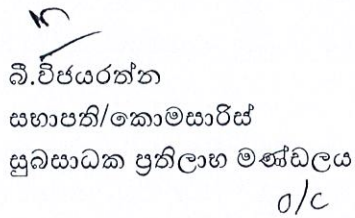 බී.විජයරත්න
සභාපති/කොමසාරිස්
සුබසාධක ප්‍රතිලාභ මණ්ඩලය
o/c